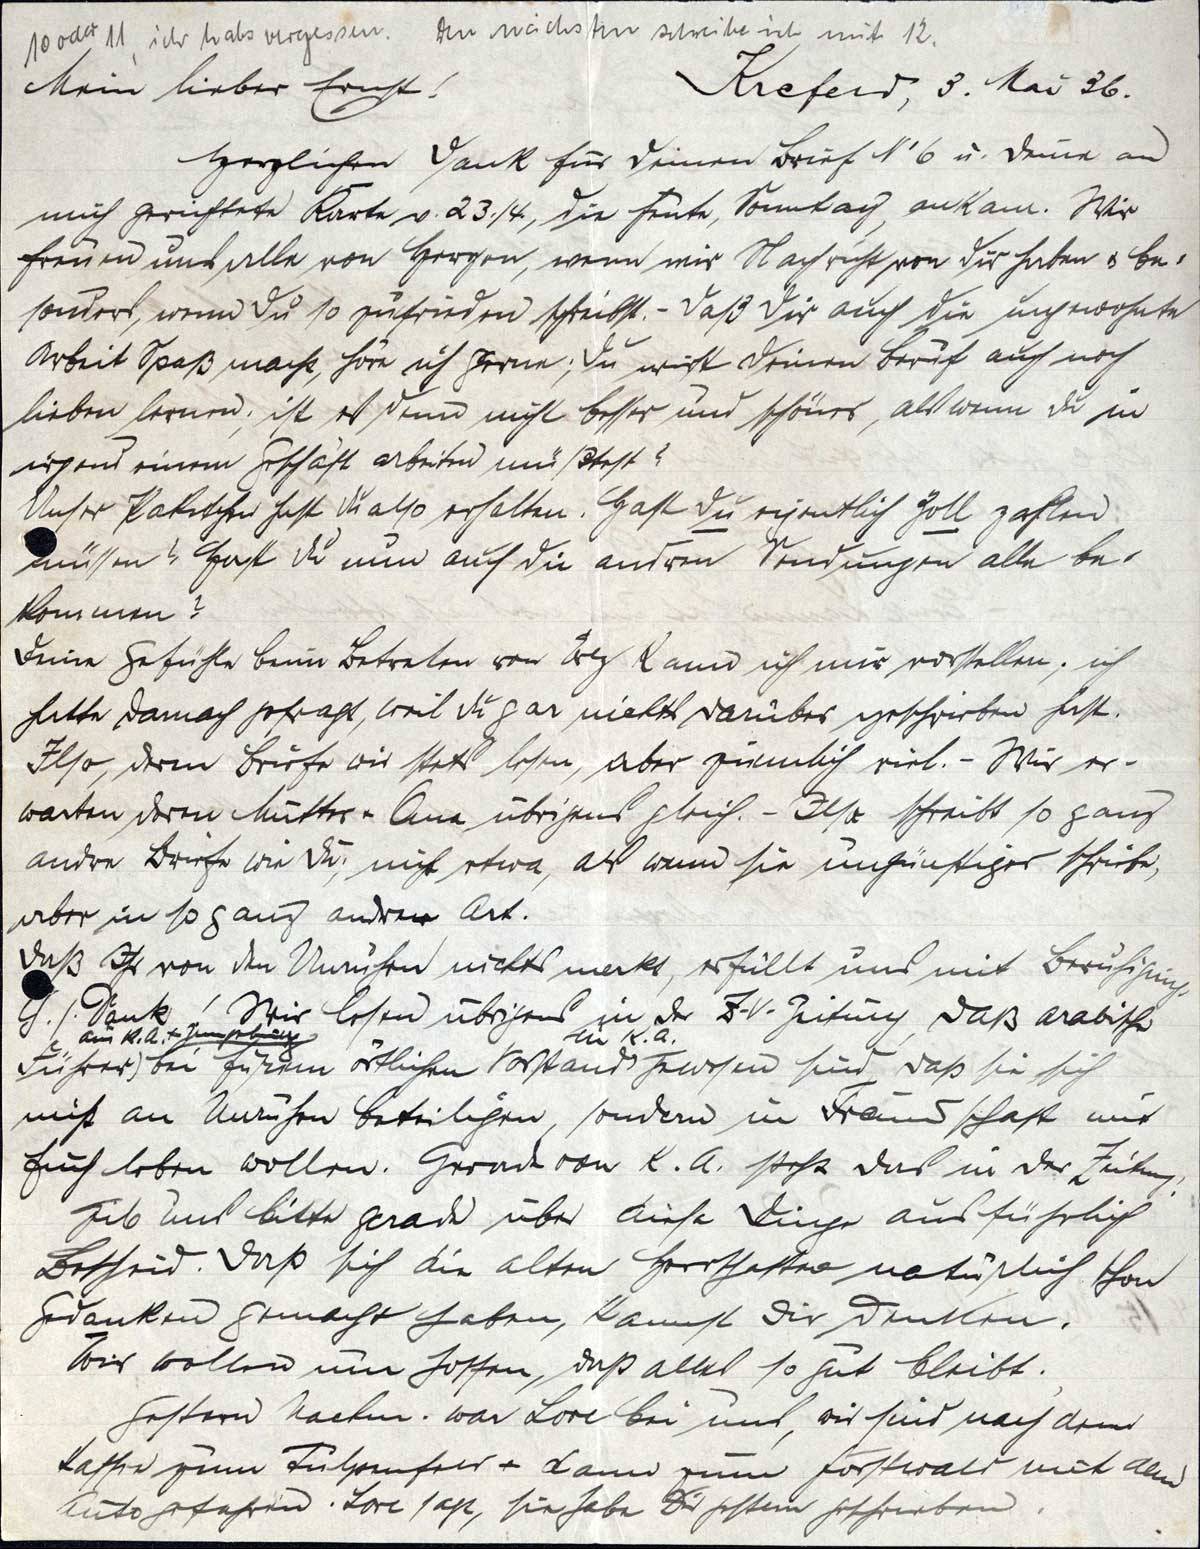 10 oder 11, ich habs vergessen. Den nächsten schreibe ich mit 12.
Mein lieber Ernst! Krefeld, 3. Mai 36.
Herzlichen Dank für Deinen Brief N° 6 u. Deine an
mich gerichtete Karte v. 23./4., die heute, Sonntag, ankam. Wir
freuen uns alle von Herzen, wenn wir Nachricht von Dir haben & be-
sonders, wenn Du so zufrieden schreibst. - Daß Dir auch die ungewohnte
Arbeit Spaß macht, höre ich gerne; Du wirst Deinen Beruf auch noch
lieben lernen; ist es denn nicht besser und schöner, als wenn Du in
irgend einem Geschäft arbeiten müßtest?
Unser Paketchen hast Du also erhalten. Hast Du eigentlich Zoll zahlen
müssen? Hast Du nun auch die andren Sendungen alle be-
kommen?
Deine Gefühle beim Betreten von Erez kann ich mir vorstellen; ich
hatte danach gefragt, weil Du gar nichts darüber geschrieben hast.
Ilse, deren Briefe wir stets lesen, aber ziemlich viel. - Wir er-
warten deren Mutter + übrigens gleich. - Ilse schreibt so ganz
andre Briefe wie Du; nicht etwa, als wenn sie ungünstiger schriebe,
aber in so ganz andrer Art.
Daß Ihr von den Unruhen nichts merkt, erfüllt uns mit Beruhigung,
G. s. Dank! Wir lesen übrigens in der Z.V. Zeitung, daß arabische
aus K.A. + in K.A.
Führer bei Eurem örtlichen Vorstand gewesen sind, daß sie sich
nicht an Unruhen beteiligen, sondern in Freundschaft mit
Euch leben wollen. Gerade von K.A. steht das in der Zeitung.
Gib uns bitte gerade über diese Dinge ausführlich
Bescheid. Daß sich die alten Herrschaften natürlich schon
Gedanken gemacht haben, kannst Dir denken.
Wir wollen nun hoffen, daß alles so gut bleibt.
Gestern Nachm. war Lore bei uns, wir sind nach dem
Kaffee zum + dann zum Forstwald mit dem
Auto gefahren. Lore sagt, sie habe Dir gestern geschrieben.